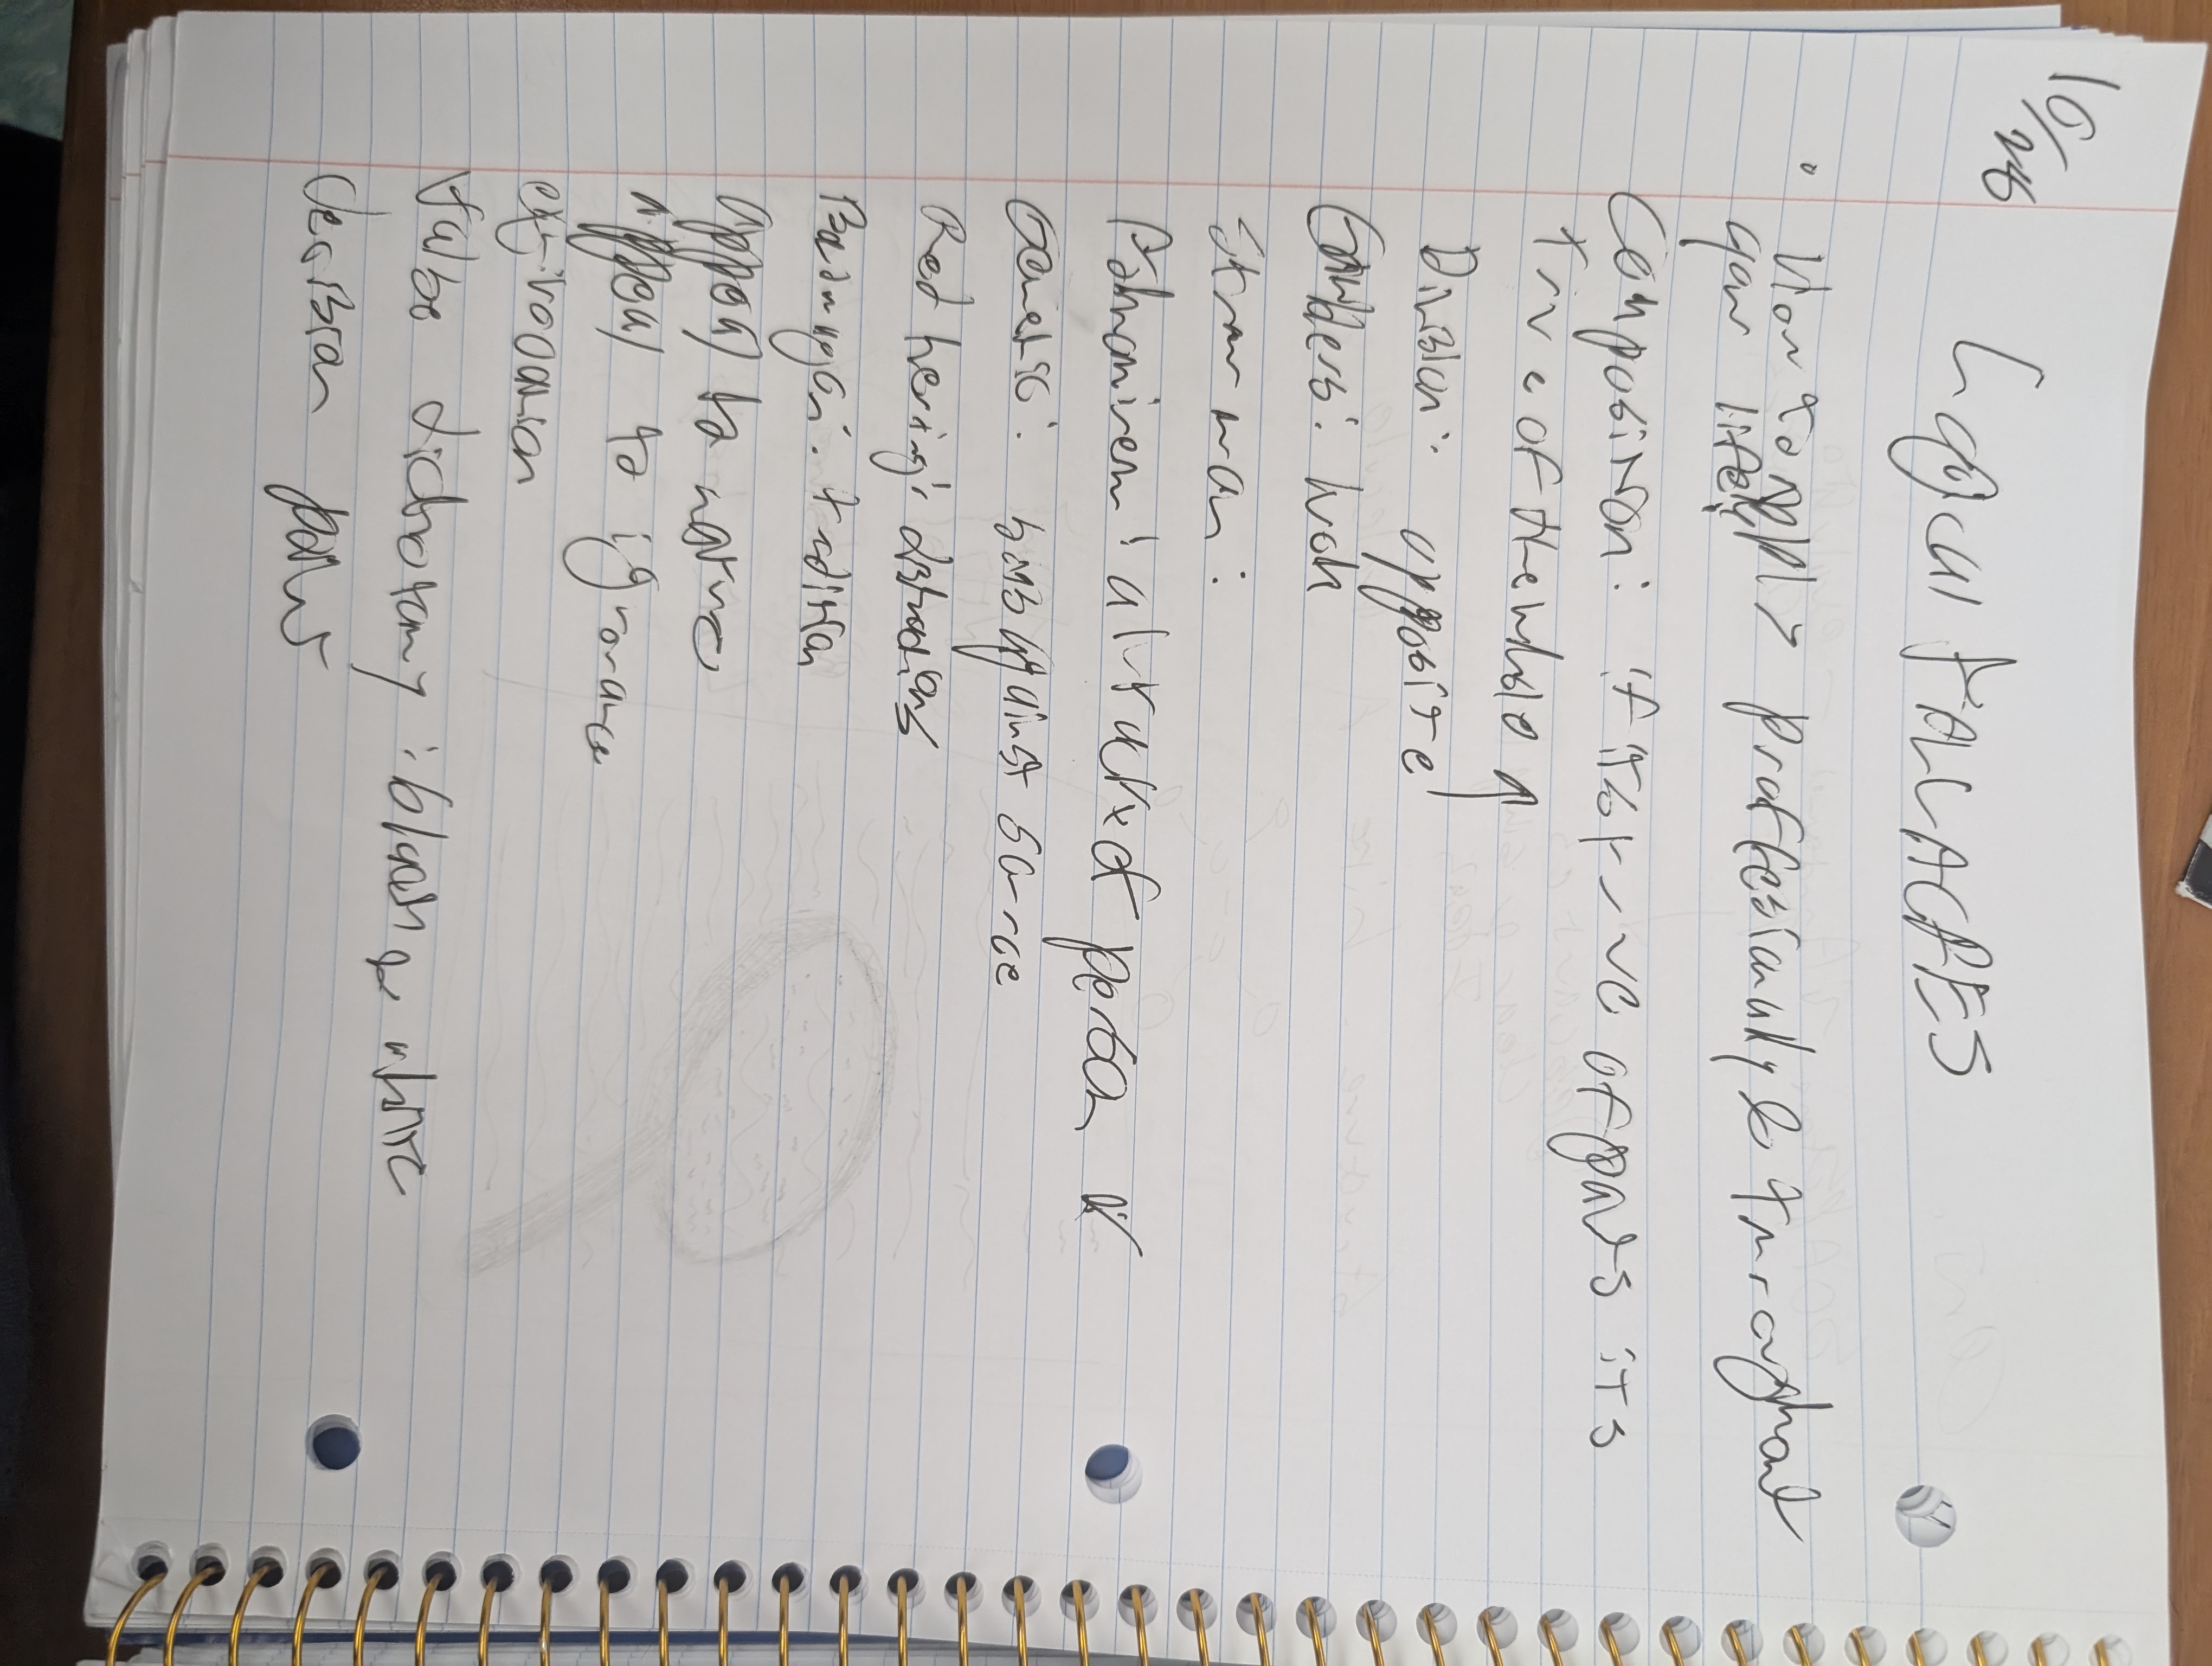 10/28
Logical FALLACIES
• How to apply proffesionally & throughout
your life?
Composition: if its true of parts its
true of the whole
Division: opposite
Gamblers: luck
Straw man:
Adhominem: attack of person
Genetic: bias against source
Red hering: distractions
Bandwagon: tradition
appeal to nature
appeal to ignorance
equivocation
false dichotomy: black & white
decision